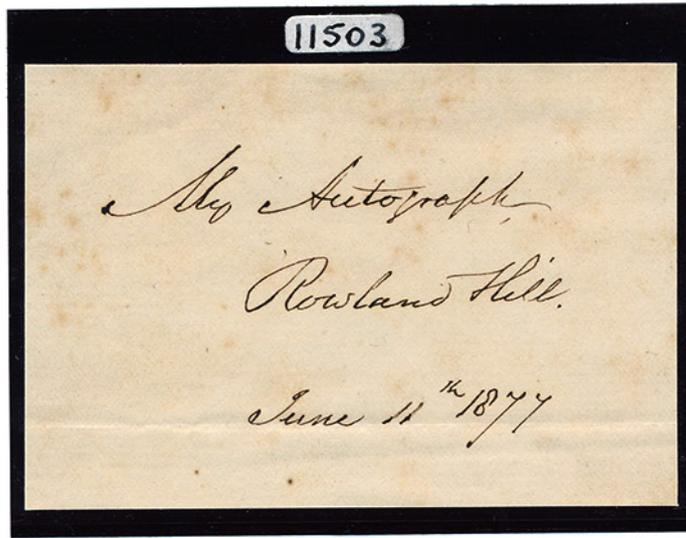 11503
My Autograph
Rowland Hill.
June 11th 1877